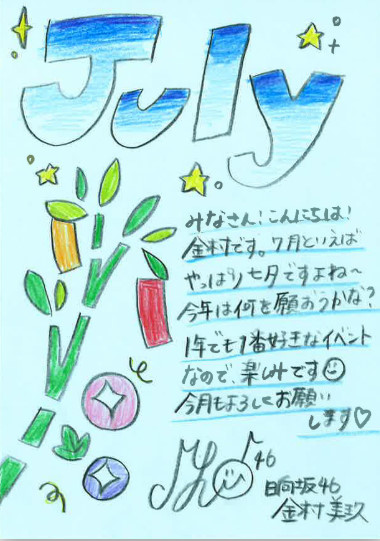 July
みなさん!こんにちは!
金村です。7月といえば
やっぱり七夕ですよね~
今年は何を願おうかな?
1年でも1番好きなイベント
なので、楽しみです
今月もよろしくお願い
します♡
46
日向坂46
金村美玖